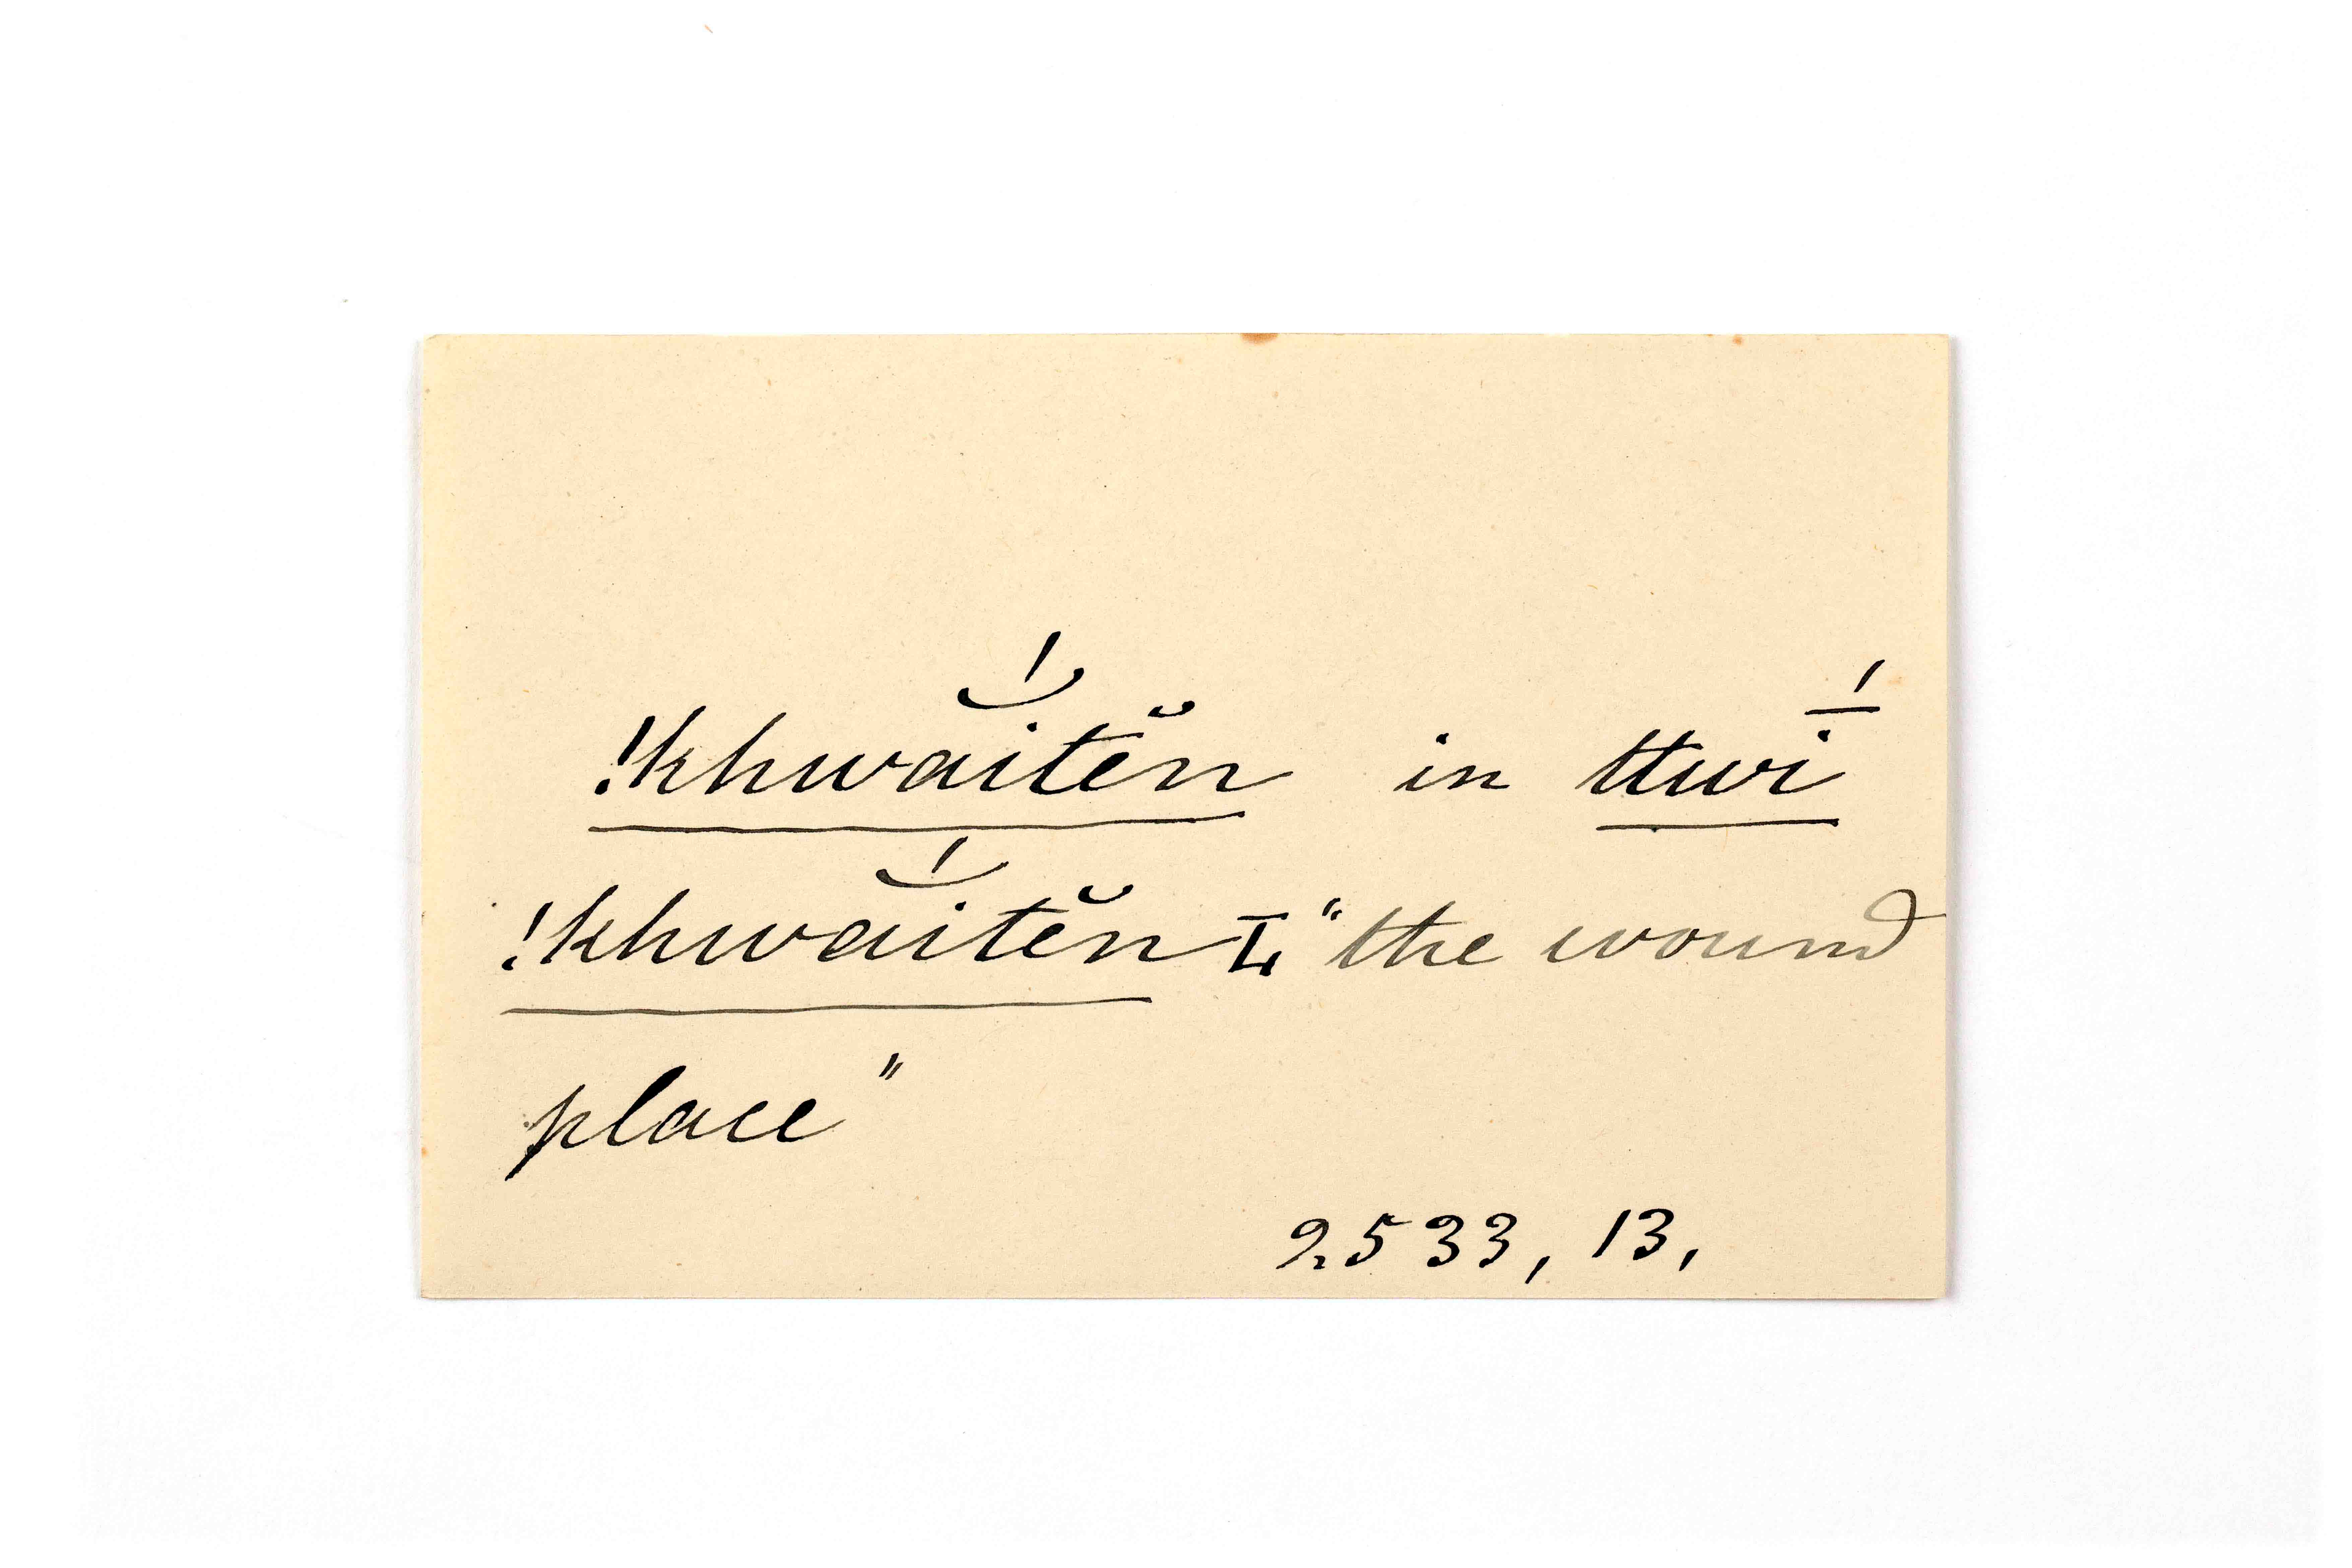 !khwá͝itĕn in ttwī́
!khwá͝itĕn L, "the wound
place"
2533, 13,